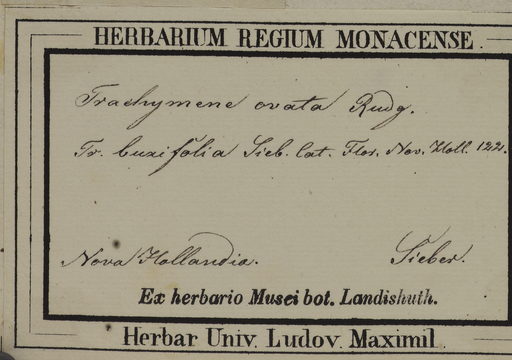 HERBARIUM REGIUM MONACENSE
Trachymene ovata Rudg.
Tr. buxifolia Sieb. Cat. Flor. Nov. Holl. 122.
Nova Hollandia. Sieber.
Ex herbario Musei bot. Landishuth.
Herbar Univ. Ludov. Maximil.